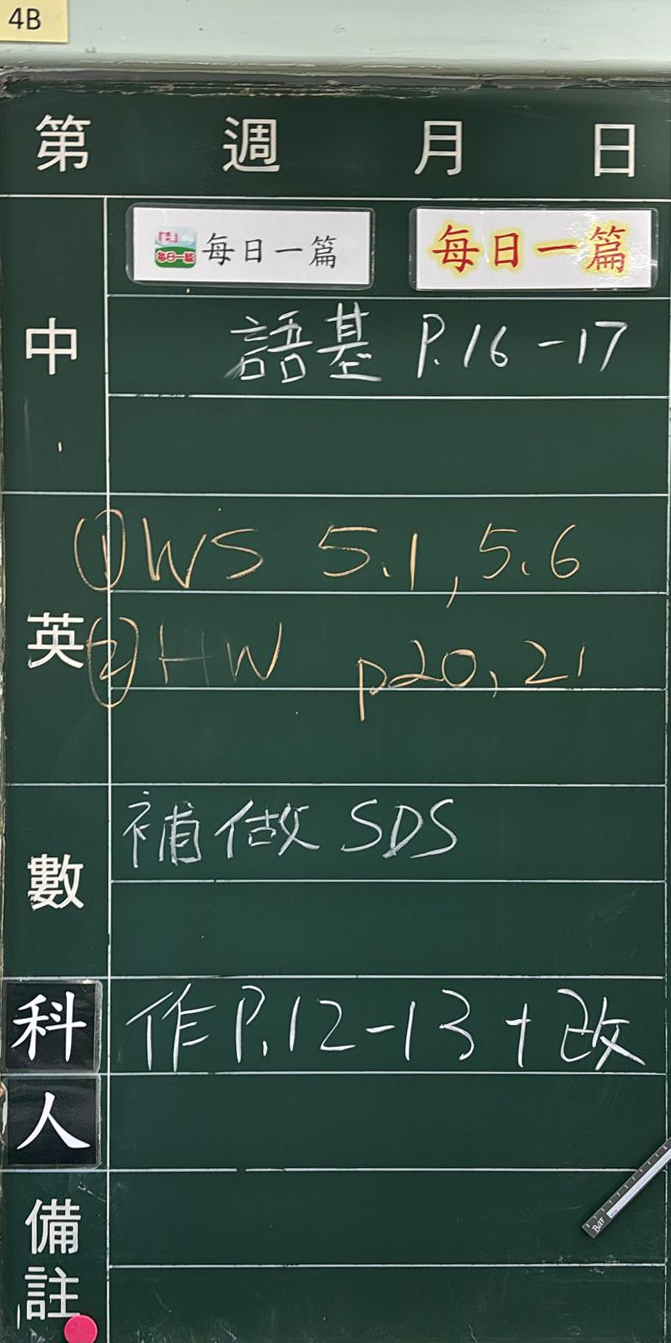 4B
第 週 月 日
每日一篇 每日一篇
中 語基 P.16-17
英 ①WS 5.1, 5.6
②HW p20, 21
數 補做 SDS
科 作P.12-13+改
人
備註